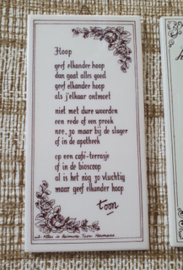 Hoop
geef elkander hoop
dan gaat alles goed
geef elkander hoop
als j'elkaar ontmoet
niet met dure woorden
een rede of een preek
nee, zo maar bij de slager
of in de apotheek
op een café-terrasje
of in de bioscoop
al is het nog zo vluchtig
maar geef elkander hoop
toon
Toon Hermans